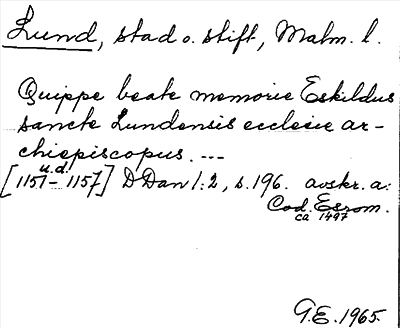 Lund, stad o. stift, Malm. l.
Quippe beate memorie Eskildus
sancte Lundensis ecclesie ar-
chiepiscopus. ---
u.d.
[1151 - 1157] DDan 1:2, s. 196. avskr. a:
Cod. Esrom.
ca 1497
G.E. 1965.